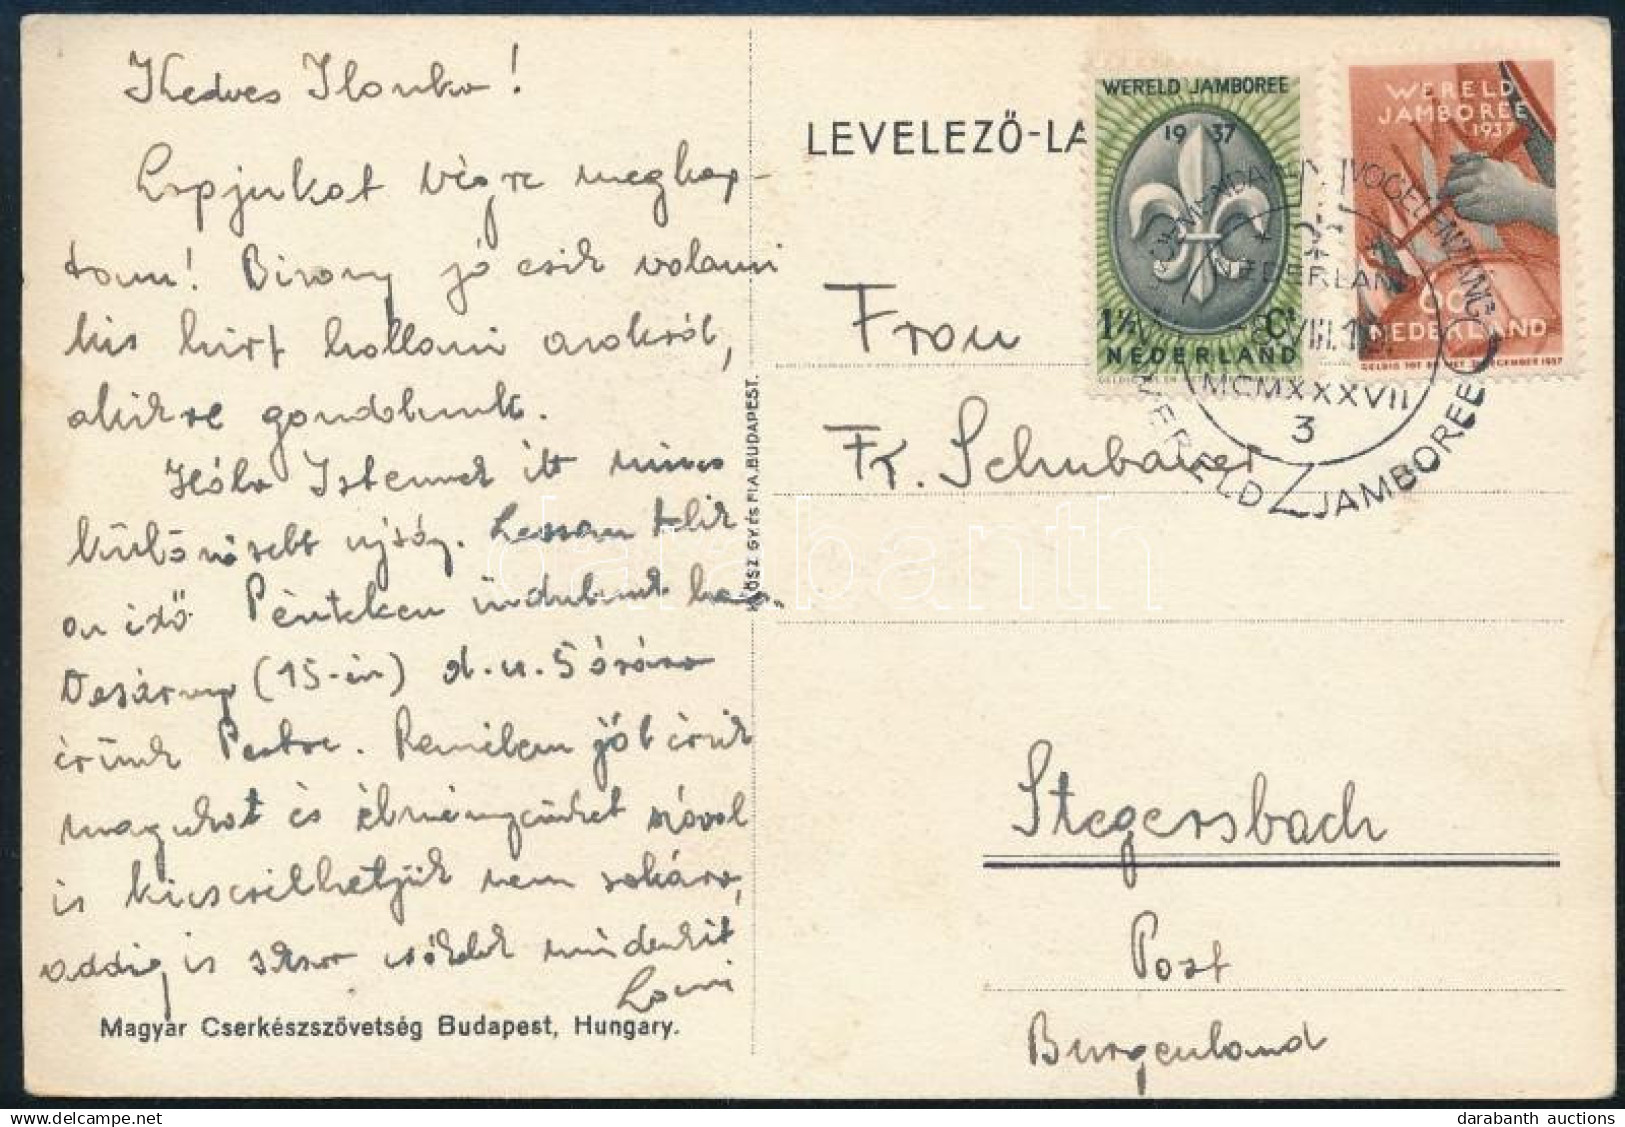 Kedves Ilonka!
Lapjukat végre megkap-
tam! Bizony jó csik valami
kis hírt hallani azokról,
akikre gondolunk.
Hála Istennek itt nincs
különösebb ujság. Lassan telik
az idő. Pénteken indulunk haza.
Vasárnap (15-én) d.u. 5 órára
érünk Pestre. Remélem jól érzik
magukat és élményeinket szóval
is kicserélhetjük nem sokára,
addig is sokszor csókolok mindenkit
Magyar Cserkészszövetség Budapest, Hungary.
KLÖSZ GY. ÉS FIA, BUDAPEST.
LEVELEZŐ-LA
WERELD JAMBOREE
19 37
1½ Ct
NEDERLAND
WERELD
JAMBOREE
1937
6 C
NEDERLAND
GELDIG TOT EN MET 31 DECEMBER 1937
VOGELENZANG
NEDERLAND
VIII.
MCMXXXVII
3
WERELD JAMBOREE
Frau
Fr. Schubauer
Stegersbach
Post
Burgenland
darabanth
darabanth auctions